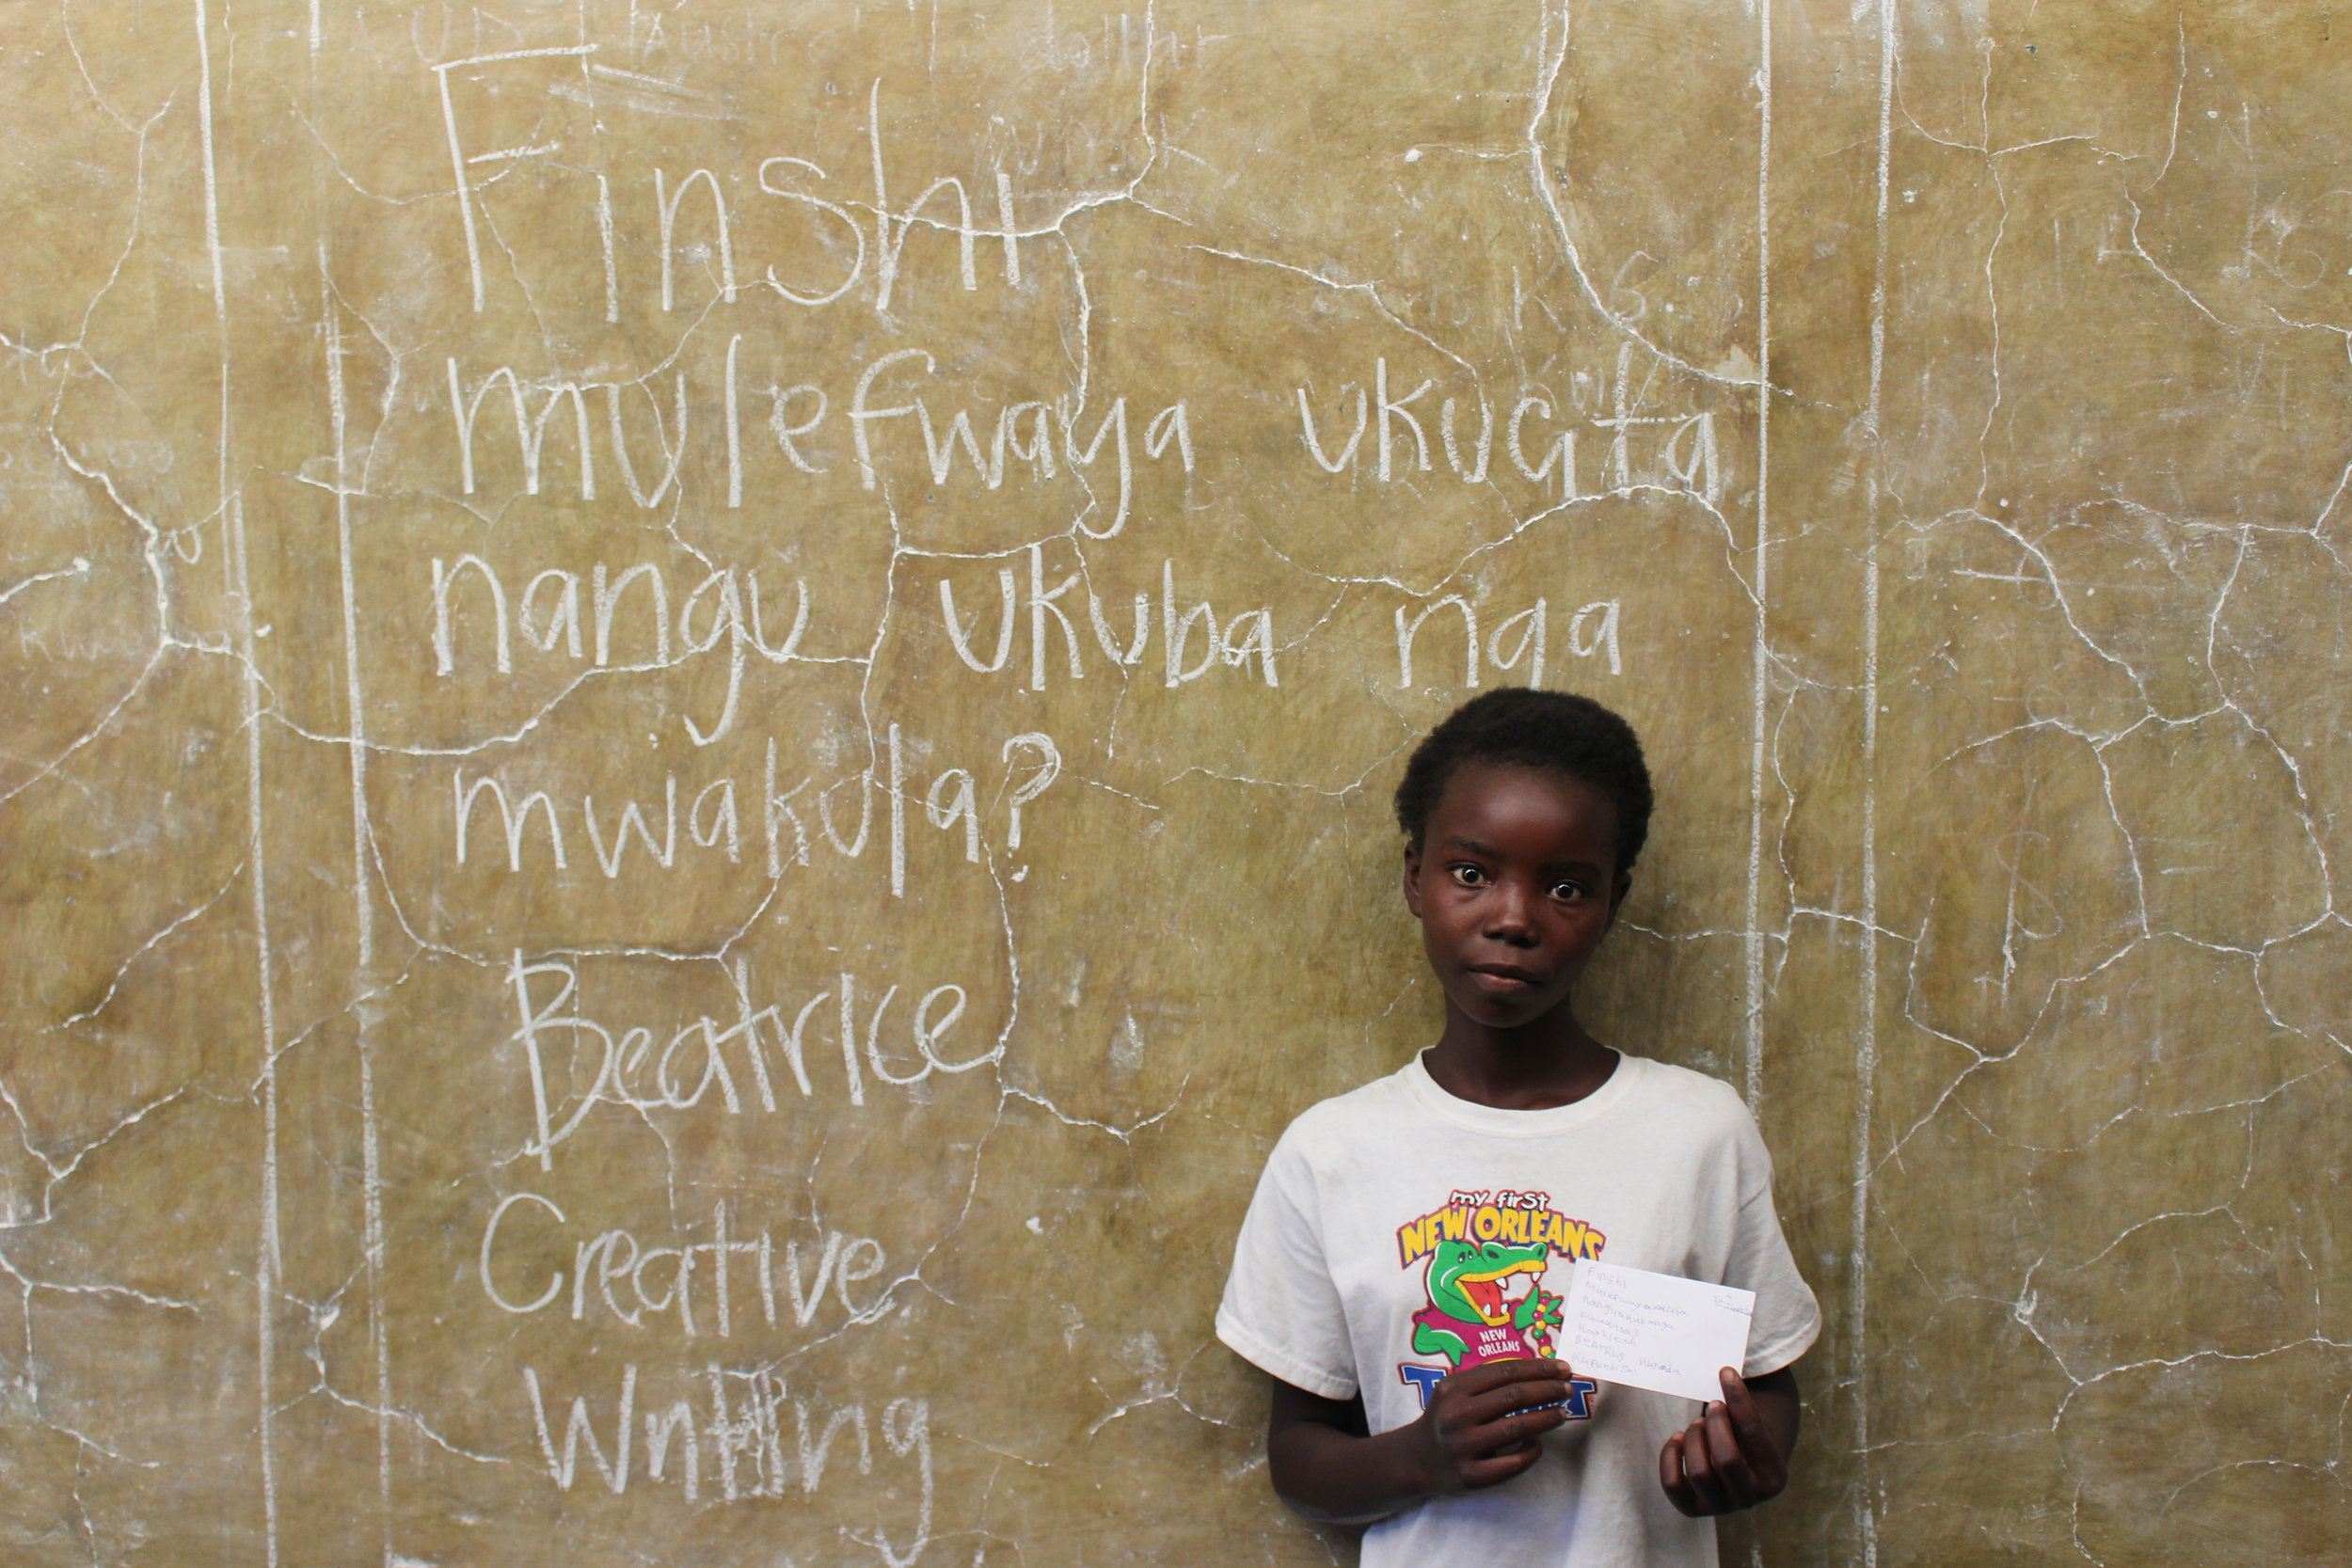 Finshi
mulefwaya ukucita
nangu ukuba nga
mwakula?
Beatrice
Creative
Writing
my first
NEW ORLEANS
NEW
ORLEANS
Finshi